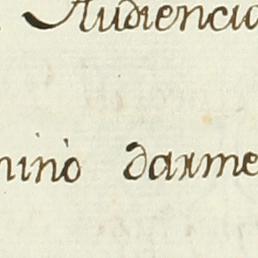 Audiencia
minò darme